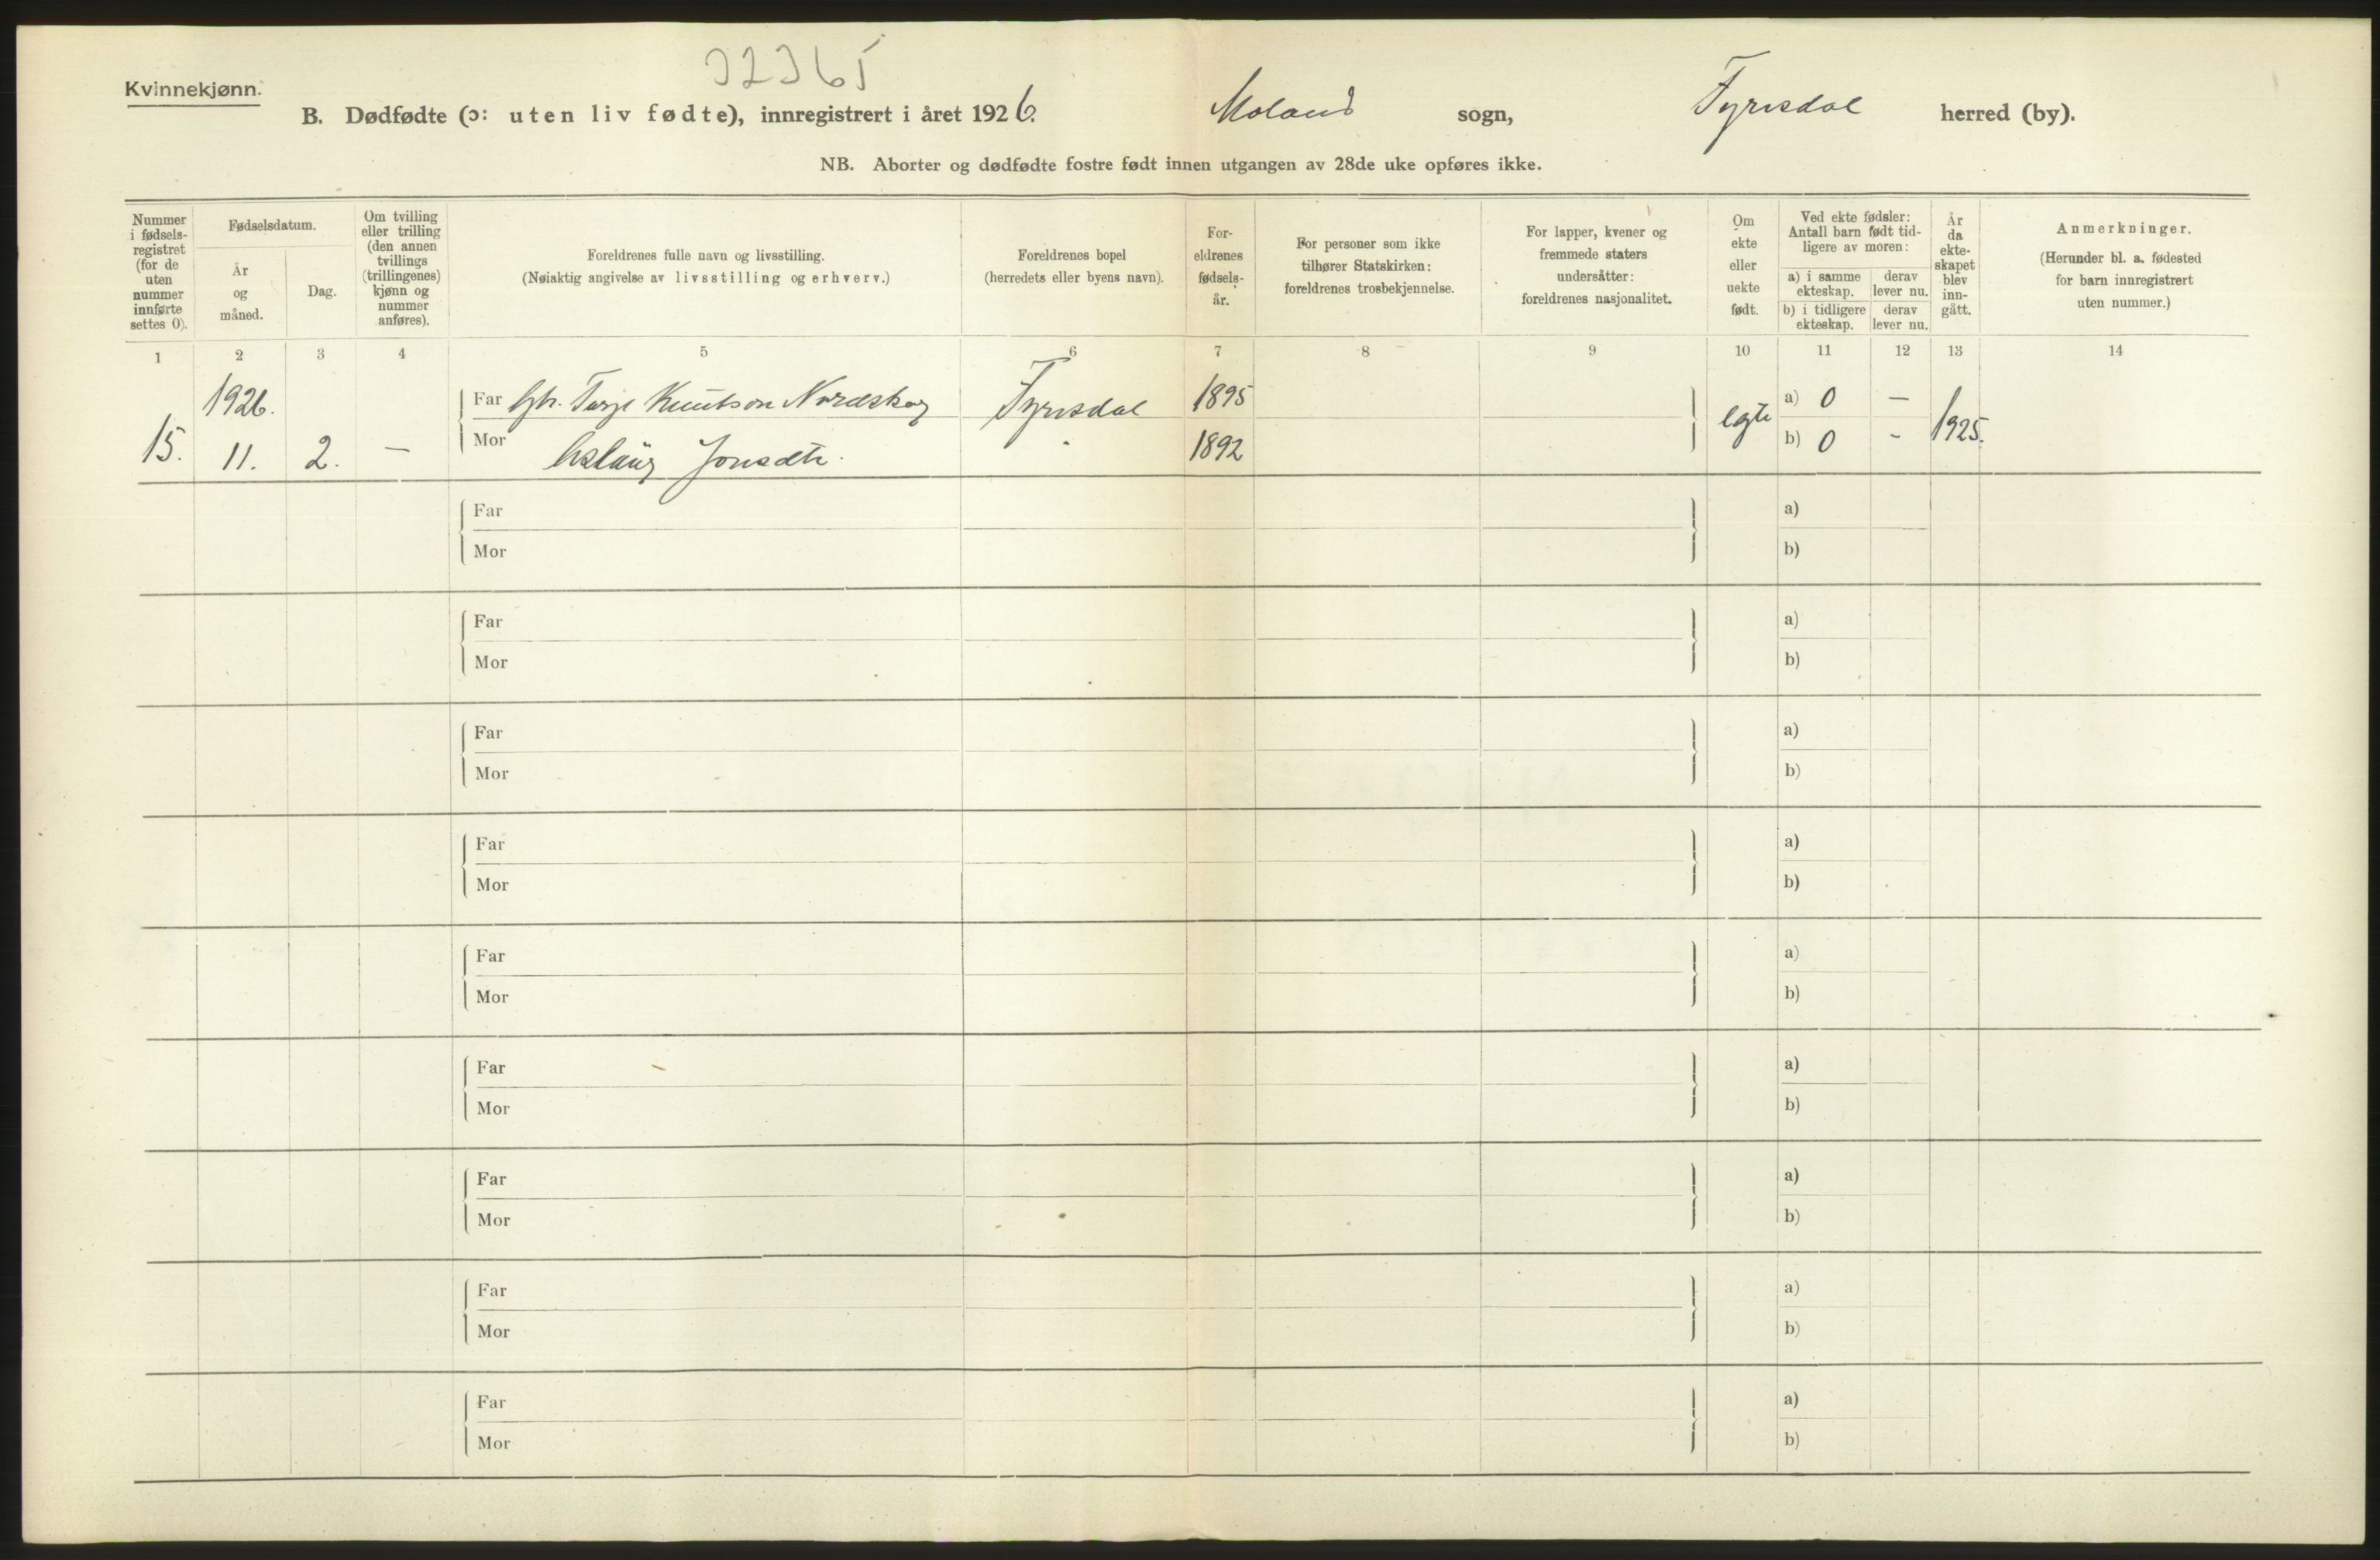 32365
Kvinnekjønn.
B. Dødfødte (ɔ: uten liv fødte), innregistrert i året 1926. Moland sogn, Tyrisdal herred (by).
NB. Aborter og dødfødte fostre født innen utgangen av 28de uke opføres ikke.
Nummer i fødsels- registret (for de uten nummer innførte settes 0).
Fødselsdatum.
År og måned.
Dag.
Om tvilling eller trilling (den annen tvillings (trillingenes) kjønn og nummer anføres).
Foreldrenes fulle navn og livsstilling.
(Nøiaktig angivelse av livsstilling og erhverv.)
Foreldrenes bopel
(herredets eller byens navn).
For- eldrenes fødsels- år.
For personer som ikke tilhører Statskirken: foreldrenes trosbekjennelse.
For lapper, kvener og fremmede staters undersåtter: foreldrenes nasjonalitet.
Om ekte eller uekte født.
Ved ekte fødsler: Antall barn født tid- ligere av moren:
a) i samme ekteskap. derav lever nu.
b) i tidligere ekteskap. derav lever nu.
År da ekte- skapet blev inn- gått.
Anmerkninger.
(Herunder bl. a. fødested for barn innregistrert uten nummer.)
1 2 3 4 5 6 7 8 9 10 11 12 13 14
1926.
Far Terje Knutson Nordskog Tyrisdal 1895 a) 0 —
15. 11. 2. — egte 1925.
Mor Aslaug Jonsdtr. " 1892 b) 0 -
Far a)
Mor b)
Far a)
Mor b)
Far a)
Mor b)
Far a)
Mor b)
Far a)
Mor b)
Far a)
Mor b)
Far a)
Mor b)
Far a)
Mor b)
Far a)
Mor b)